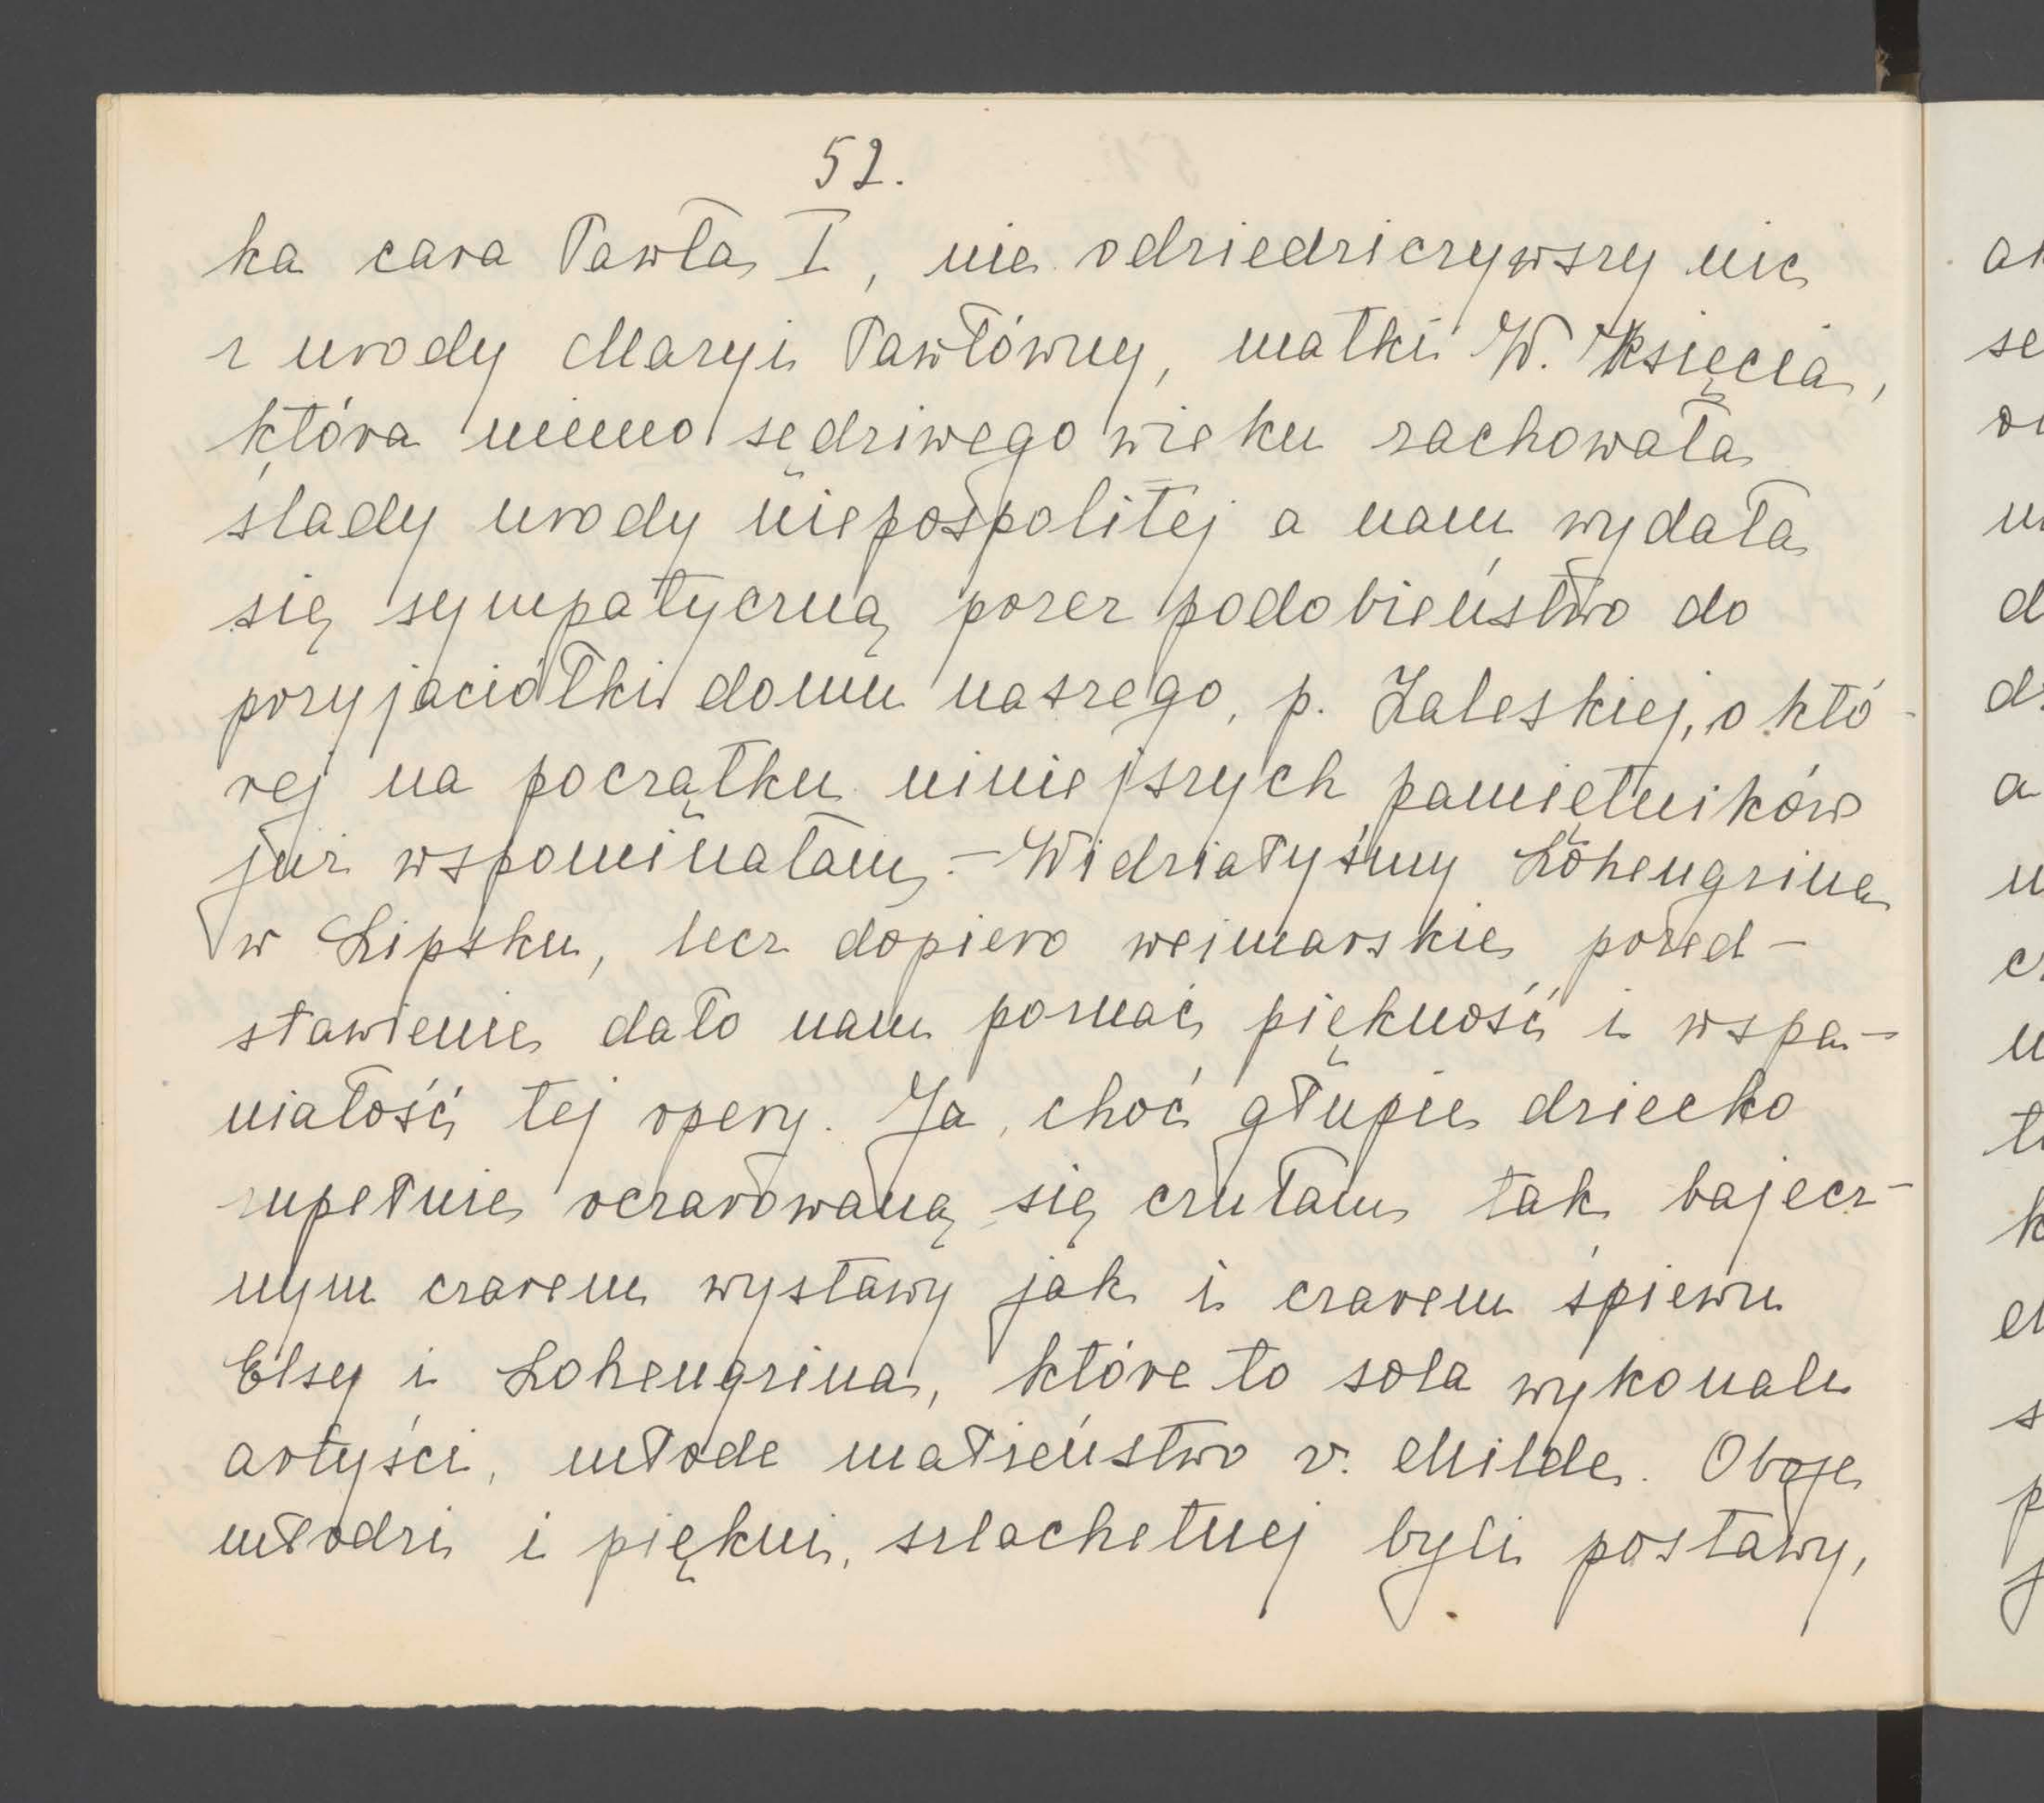 52.
ka cara Pawła I, nie odziedziczywszy nic
z urody Maryi Pawłówny, matki W. Księcia,
która mimo sędziwego wieku zachowała
ślady urody niepospolitej a nam wydała
się sympatyczną przez podobieństwo do
przyjaciółki domu naszego, p. Zaleskiej, o któ-
rej na początku niniejszych pamiętników
już wspominałam. – Widziałyśmy Lohengrina
w Lipsku, lecz dopiero weimarskie przed-
stawienie dało nam poznać piękność i wspa-
niałość tej opery. Ja, choć głupie dziecko
zupełnie oczarowaną się czułam tak bajecz-
nym czarem wystawy jak i czarem śpiewu
Elsy i Lohengrina, które to sola wykonali
artyści, młode małżeństwo v. Milde. Oboje
młodzi i piękni, szlachetnej byli postawy,